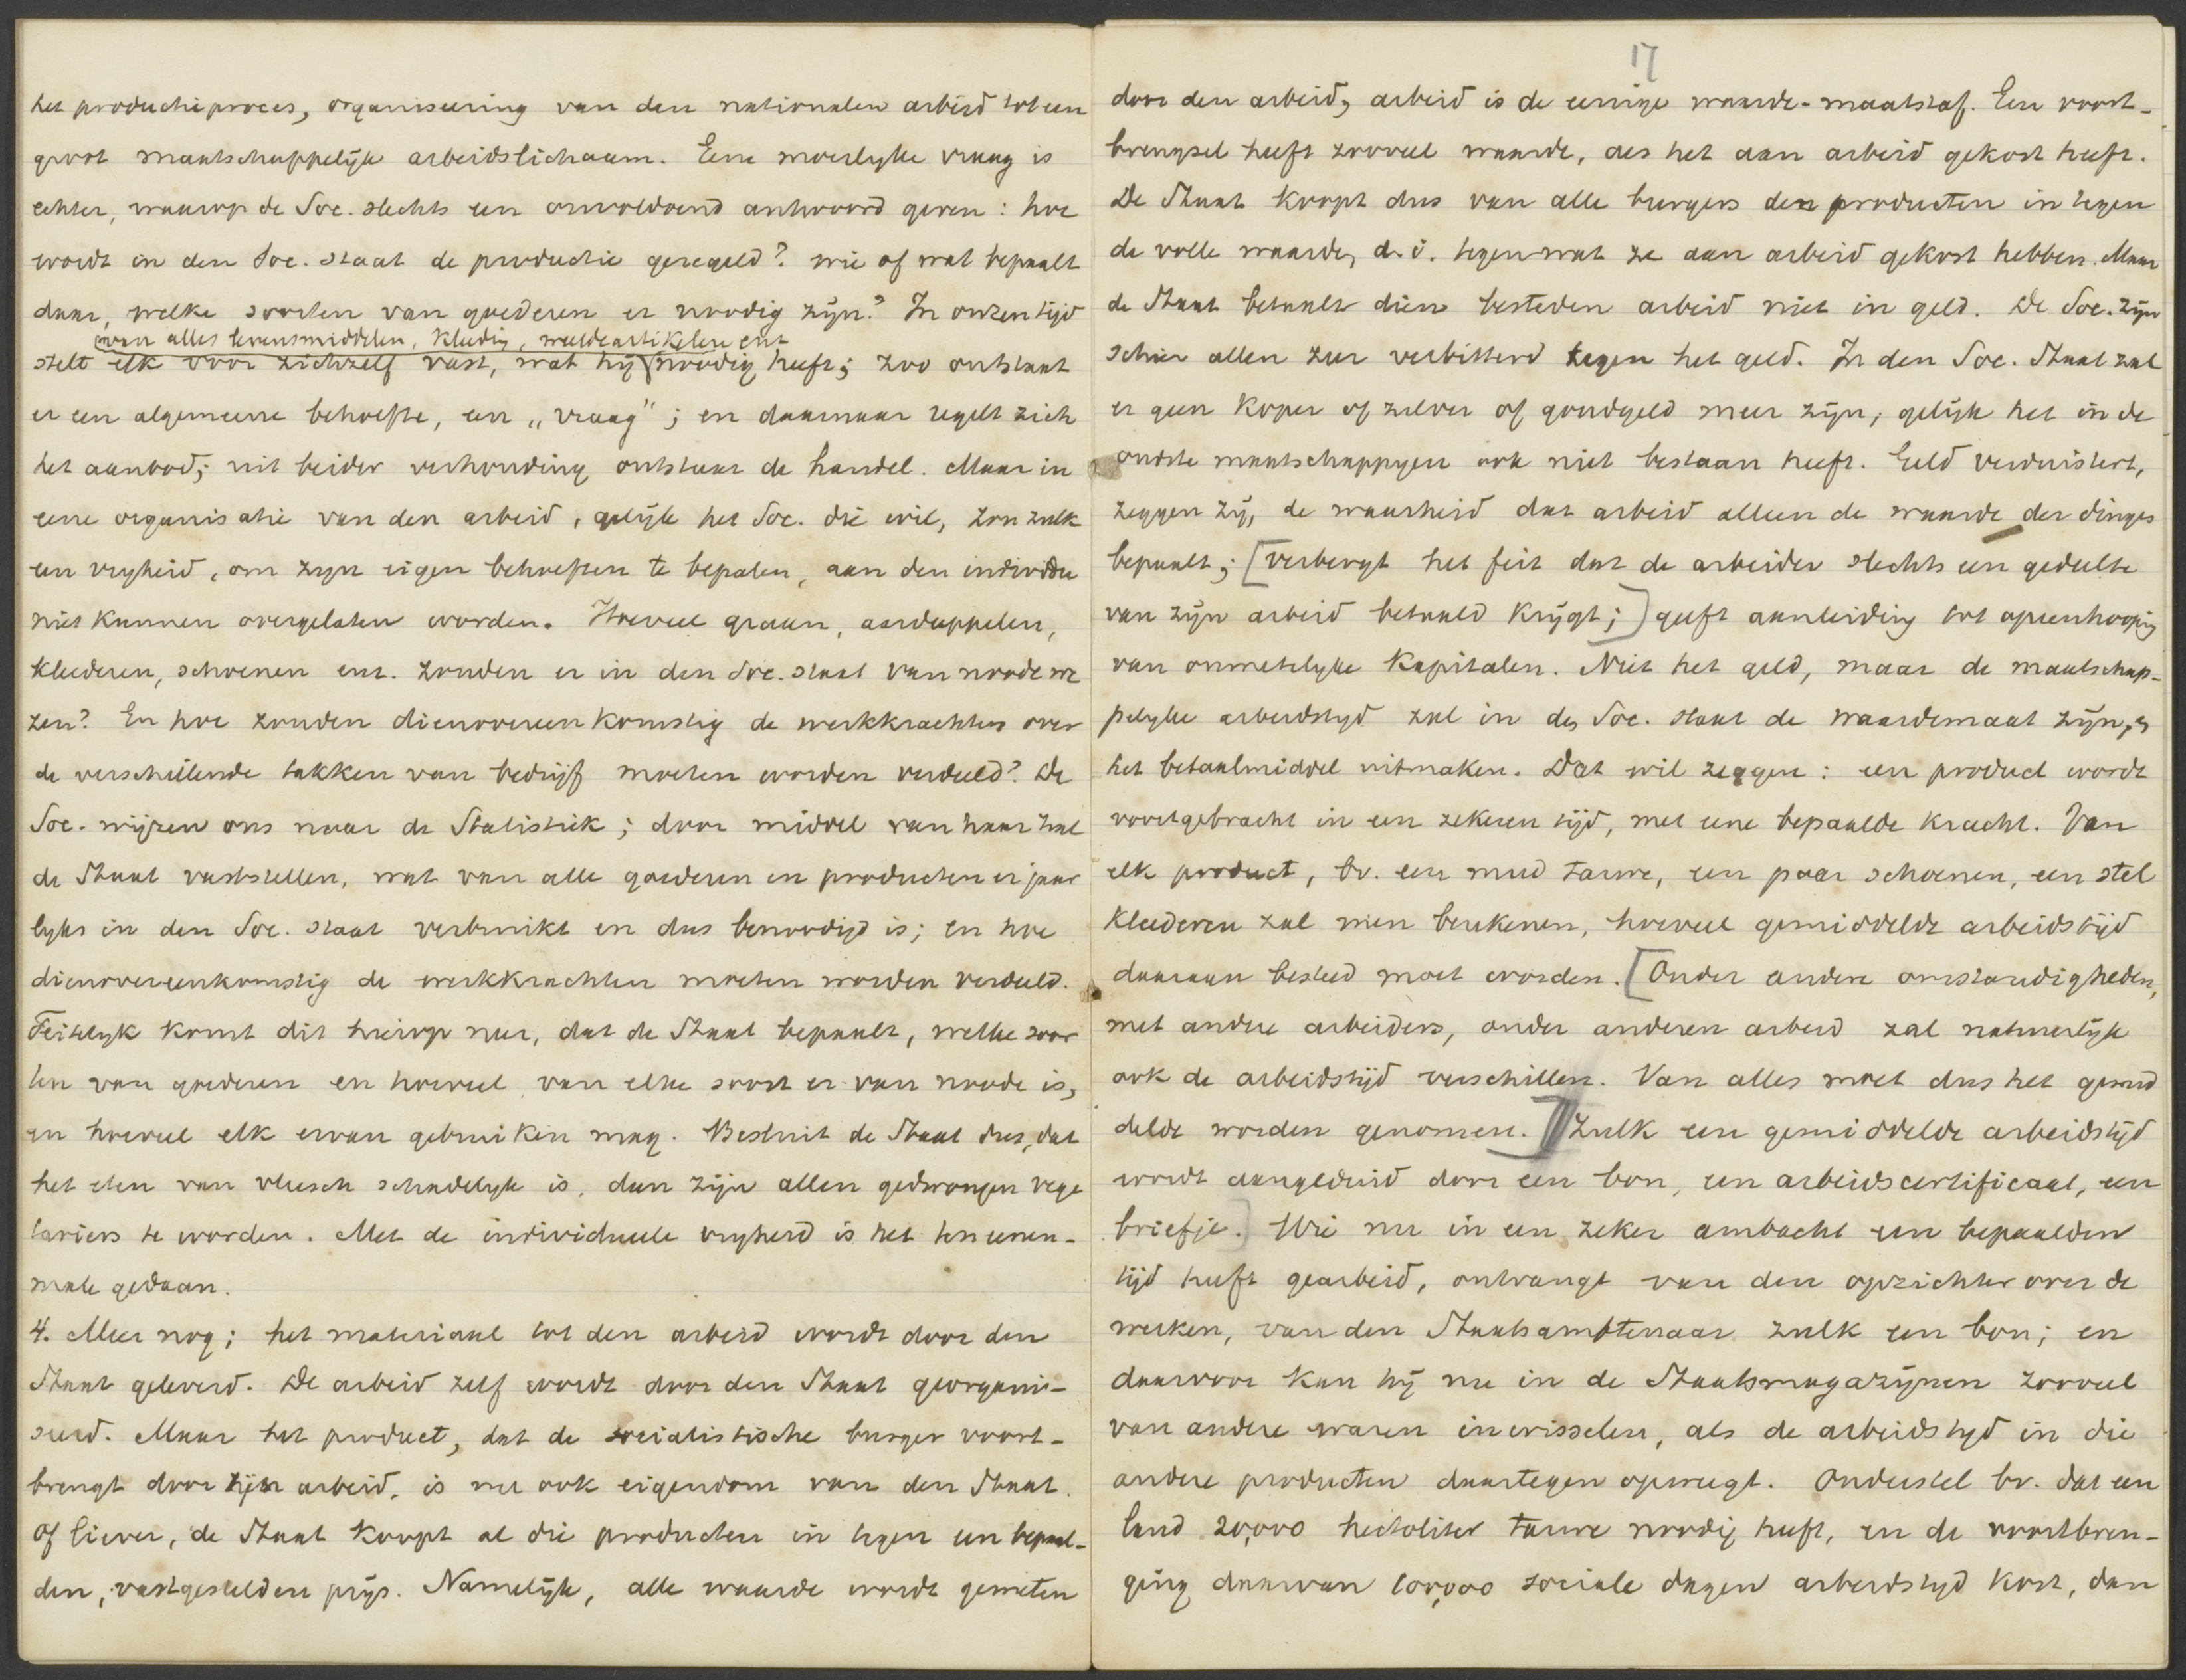 het productieproces, organiseering van den nationalen arbeid tot een
groot maatschappelijk arbeidslichaam. Eene moeilyke vraag is
echter, waarop de Soc. slechts een onvoldoend antwoord geven: hoe
wordt in den Soc. staat de productie geregeld? wie of wat bepaalt
daar, welke soorten van goederen er noodig zijn? In onzen tijd
van alles levensmiddelen, kleeding, weeldeartikelen enz
stelt elk voor zichzelf vast, wat hij noodig heeft; zoo ontstaat
er een algemeene behoefte, een „vraag"; en daarnaar regelt zich
het aanbod; uit beider verhouding ontstaat de handel. Maar in
eene organisatie van den arbeid, gelijk het Soc. die wil, zou zulk
een vryheid, om zyn eigen behoeften te bepalen, aan den individu
niet kunnen overgelaten worden. Hoeveel graan, aardappelen,
kleederen, schoenen enz. zouden er in den Soc. staat van noode we
zen? En hoe zouden dienovereenkomstig de werkkrachten over
de verschillende takken van bedrijf moeten worden verdeeld? De
Soc. wijzen ons naar de Statistiek; door middel van haar zal
de Staat vaststellen, wat van alle goederen en producten er jaar
lyks in den Soc. staat verbruikt en dus benoodigd is; en hoe
dienovereenkomstig de werkkrachten moeten worden verdeeld.
Feitelyk komt dit hierop neer, dat de Staat bepaalt, welke soor
ten van goederen en hoeveel van elke soort er van noode is,
en hoeveel elk ervan gebruiken mag. Besluit de Staat dus, dat
het eten van vleesch schadelyk is, dan zijn allen gedwongen vege
tariërs te worden. Met de individueele vryheid is het ten eenen-
male gedaan.
4. Meer nog; het materiaal tot den arbeid wordt door den
Staat geleverd. De arbeid zelf wordt door den Staat georgani-
seerd. Maar het product, dat de socialistische burger voort-
brengt door zijn arbeid, is nu ook eigendom van den Staat.
Of liever, de Staat koopt al die producten in tegen een bepaal-
den, vastgestelden prijs. Namelijk, alle waarde wordt gemeten
17
door den arbeid, arbeid is de eenige waarde-maatstaf. Een voort-
brengsel heeft zooveel waarde, als het aan arbeid gekost heeft.
De Staat koopt dus van alle burgers den producten in tegen
de volle waarde, d.i. tegen wat ze aan arbeid gekost hebben. Maar
de Staat betaalt dien besteden arbeid niet in geld. De Soc. zijn
schier allen zeer verbitterd tegen het geld. In den Soc. Staat zal
er geen koper of zilver of goudgeld meer zijn, gelijk het in de
oudste maatschappyen ook niet bestaan heeft. Geld verduistert,
zeggen zij, de waarheid dat arbeid alleen de waarde der dingen
bepaalt; [verbergt het feit dat de arbeider slechts een gedeelte
van zijn arbeid betaald krijgt;] geeft aanleiding tot opeenhooping
van onmetelyke kapitalen. Niet het geld, maar de maatschap-
pelyke arbeidstyd zal in den Soc. staat de waardemaat zijn, en
het betaalmiddel uitmaken. Dat wil zeggen: een product wordt
voortgebracht in een zekeren tijd, met eene bepaalde kracht. Van
elk product, bv. een mud tarwe, een paar schoenen, een stel
kleederen zal men berekenen, hoeveel gemiddelde arbeidstijd
daaraan besteed moet worden. [Onder andere omstandigheden,
met andere arbeiders, onder anderen arbeid zal natuurlijk
ook de arbeidstijd verschillen. Van alles moet dus het gemid
delde worden genomen.] Zulk een gemiddelde arbeidstijd
wordt aangeduid door een bon, een arbeidscertificaat, een
briefje.] Wie nu in een zeker ambacht een bepaalden
tijd heeft gearbeid, ontvangt van den opzichter over de
werken, van den Staatsambtenaar zulk een bon; en
daarvoor kan hij nu in de Staatsmagazijnen zooveel
van andere waren inwisselen, als de arbeidstyd in die
andere producten daartegen opweegt. Onderstel bv. dat een
land 20,000 hectoliter tarwe noodig heeft, en de voortbren-
ging daarvan 100,000 sociale dagen arbeidstyd kost, dan